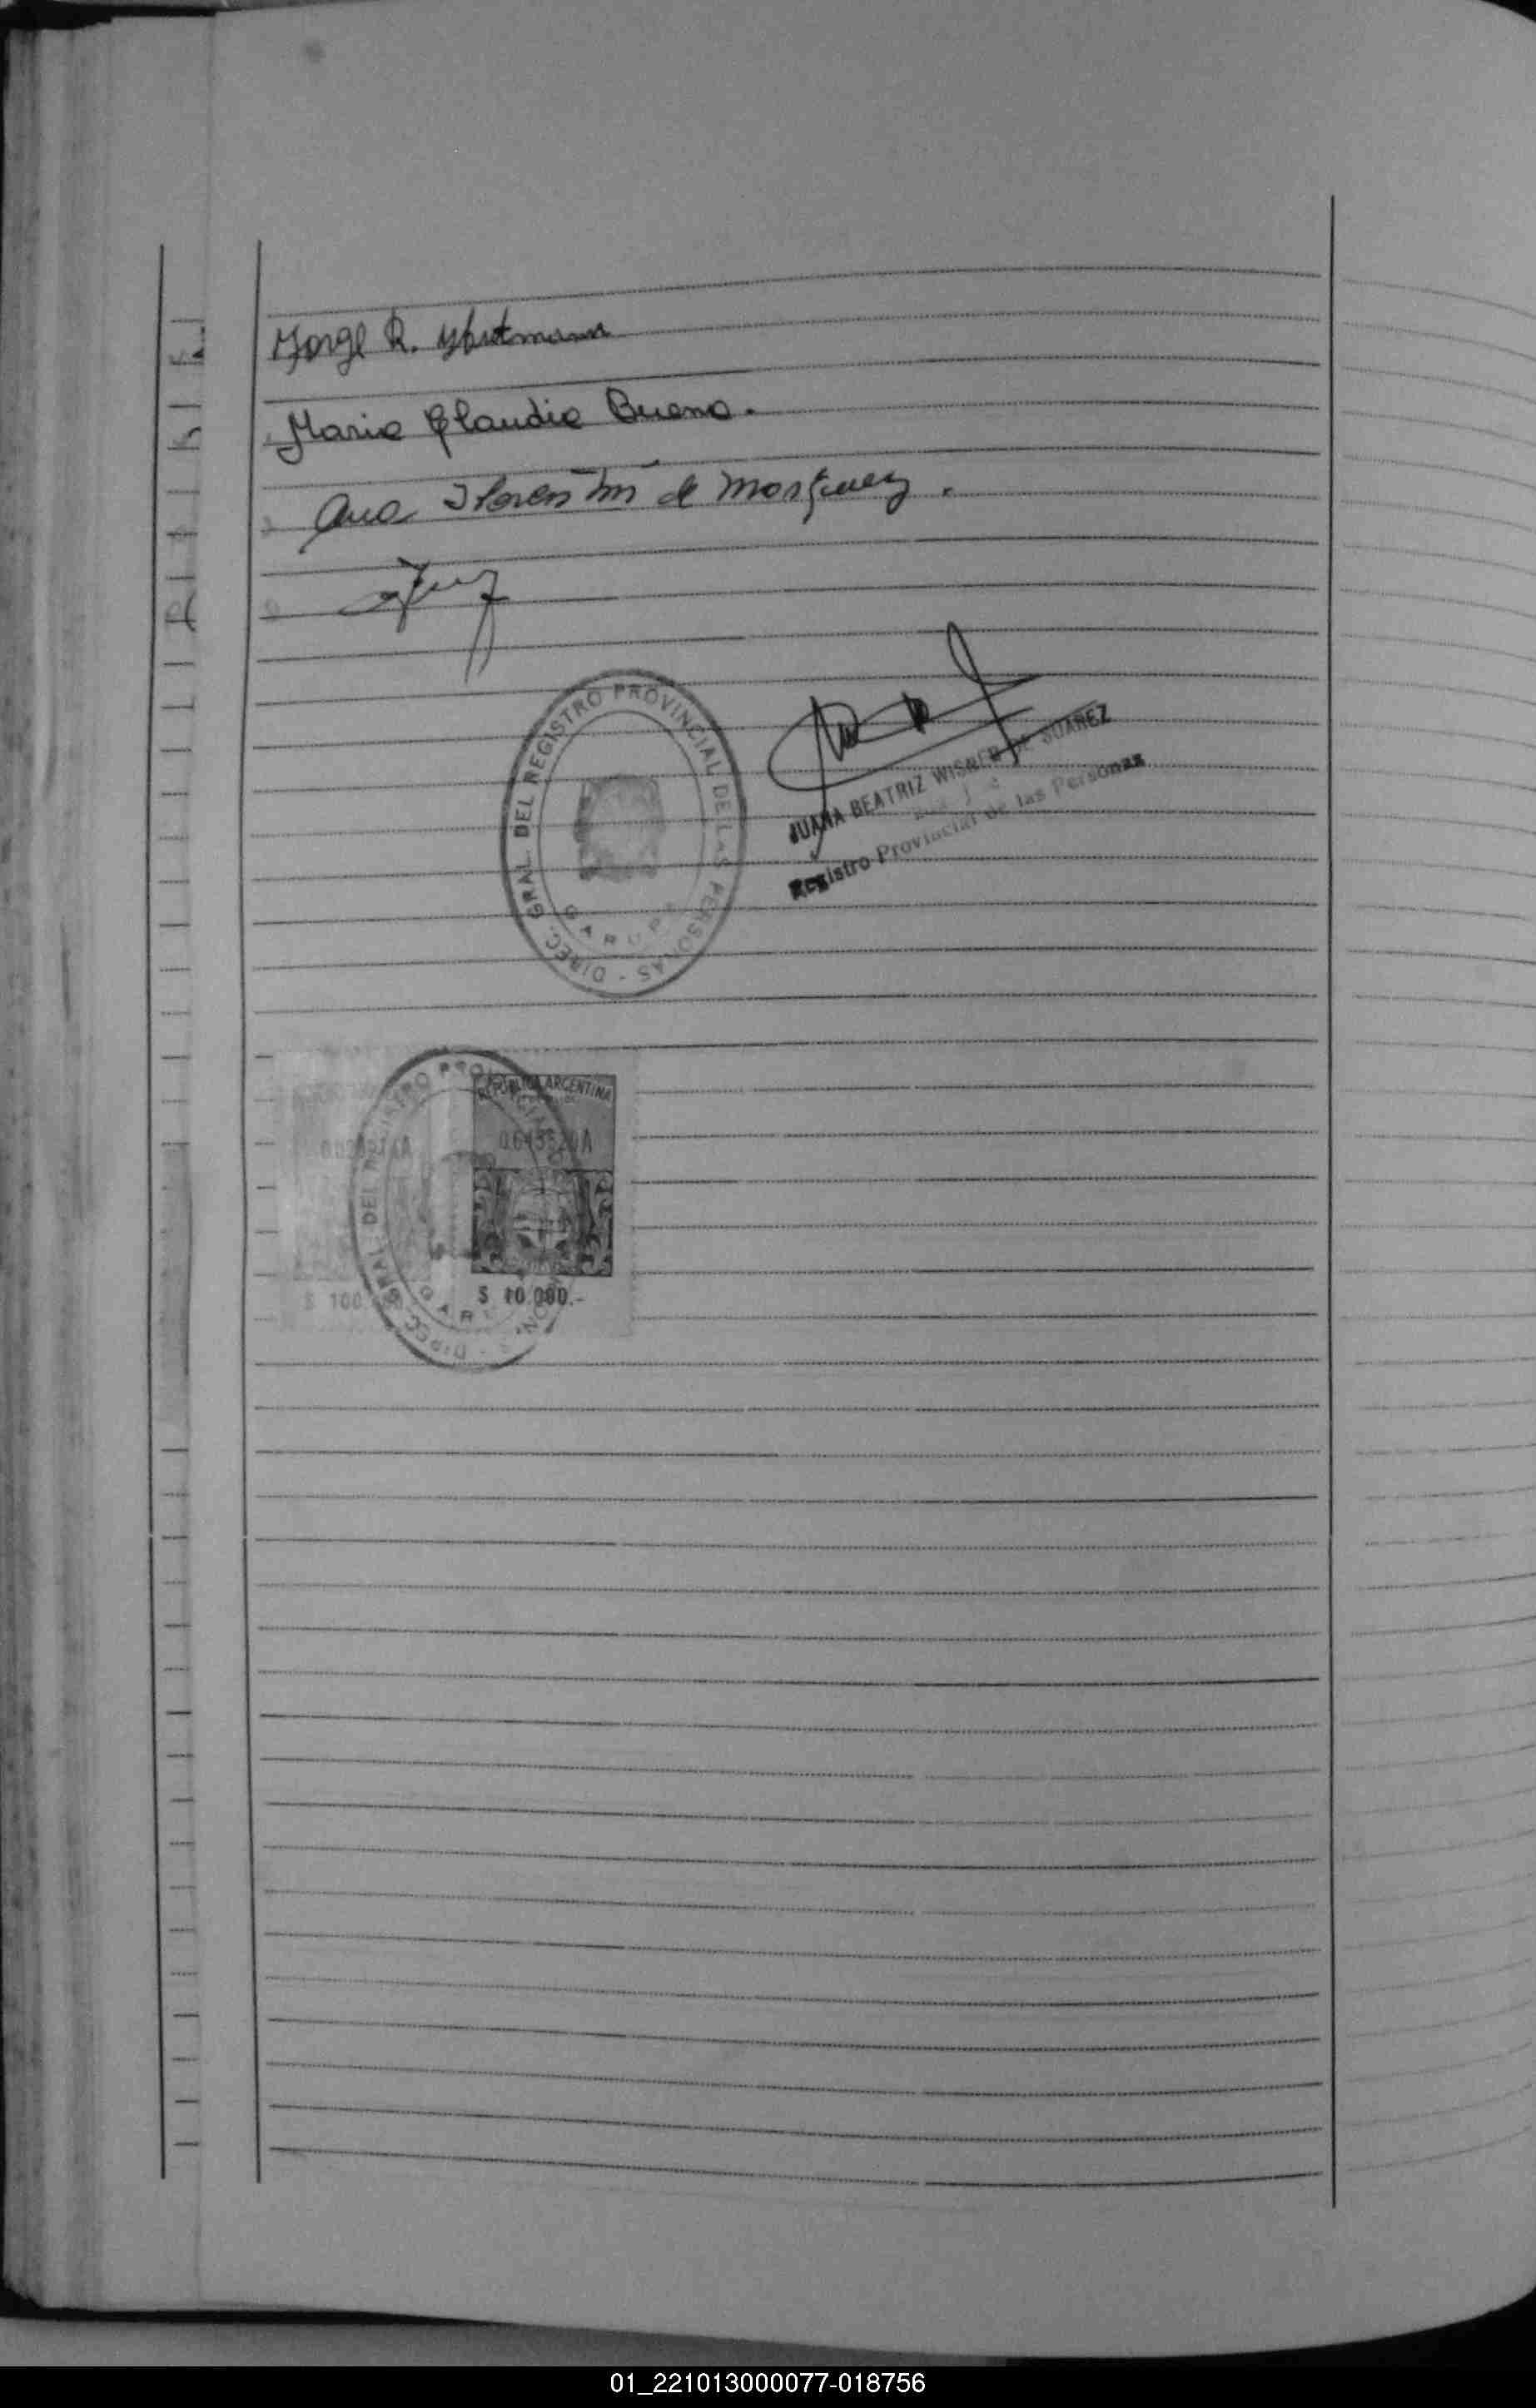 Jorge R.
Maria Claudia Bueno.
Ana Florentin de Marquez.
DIREC. GRAL. DEL REGISTRO PROVINCIAL DE LAS PERSONAS -
GARUPA
JUANA BEATRIZ WISNER DE SUAREZ
Registro Provincial de las Personas
REPUBLICA ARGENTINA
$ 10.000.-
$ 100.
DIREC. GRAL. DEL REGISTRO PRO
GARU
01_221013000077-018756